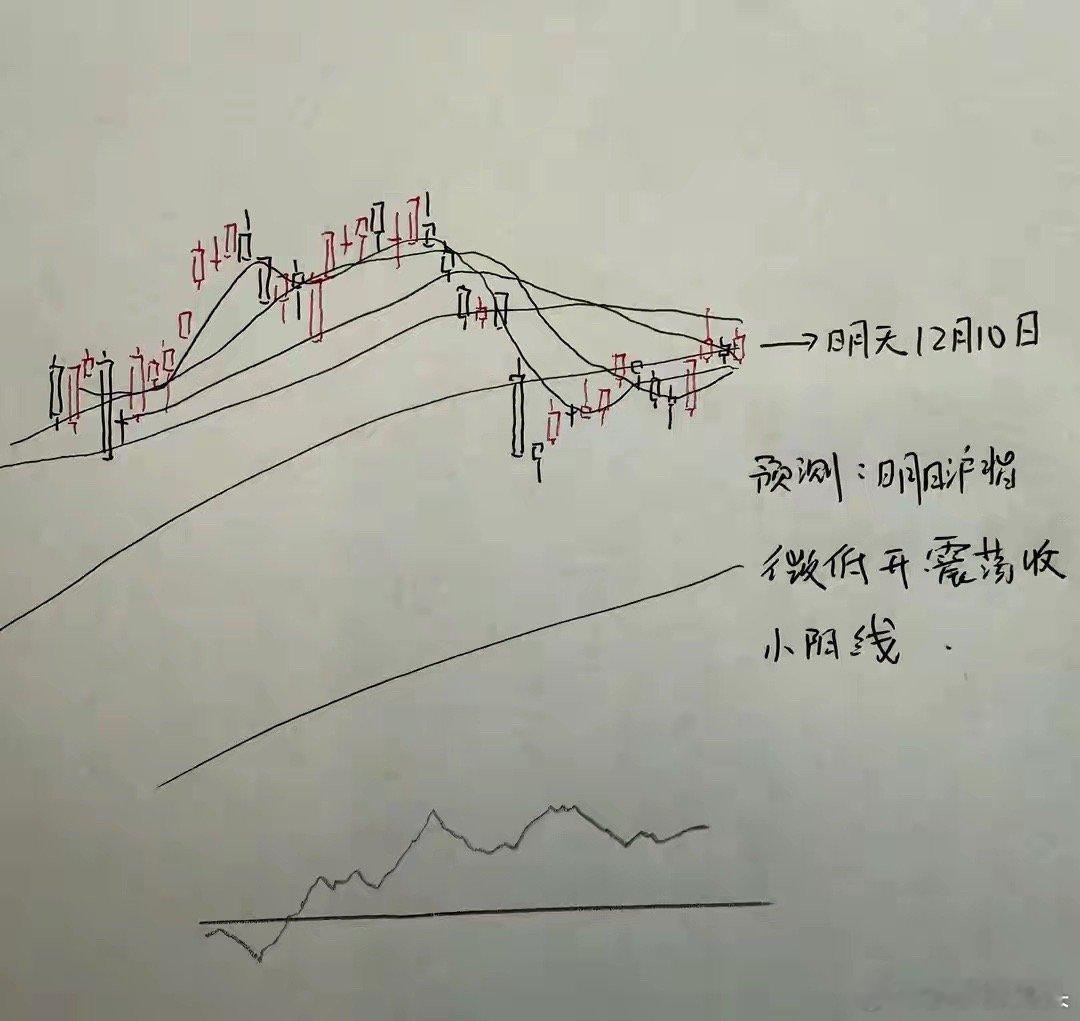 →明天12月10日
预测:明日沪指
微低开震荡收
小阳线.